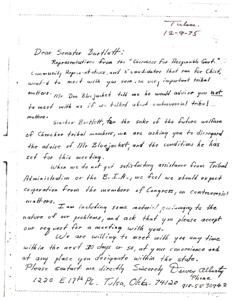 Tulsa
12-9-75
Dear Senator Bartlett:
Representatives from the "Cherokees for Responsible Govt."
Community Representatives, and candidates that ran for Chief,
want to meet with you soon on very important tribal
matters. Mr Don Blackjacket told me he would advise you not
to meet with us if we talked about controversial tribal
matters.
Senator Bartlett, for the sake of the future welfare
of Cherokee tribal members, we are asking you to disregard
the advice of Mr Blackjacket, and the conditions he has
set for this meeting.
When we do not get satisfactory assistance from Tribal
Administration or the B.I.A., we feel we should expect
cooperation from the members of Congress, on controversial
matters.
I am including some material pertaining to the
nature of our problems, and ask that you please accept
our request for a meeting with you.
We are willing to meet with you any time
within the next 30 days or so, at your convenience and
at any place you designate within the state.
Please contact me directly Sincerely Dewey
1220 E 17th Pl. Tulsa, Okla. 74120 Phone
918-